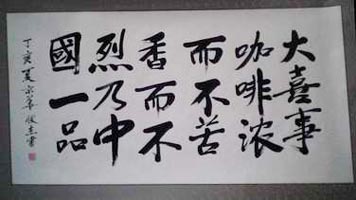 大喜事
咖啡浓
而不苦
香而不
烈乃中
國一品
丁亥夏